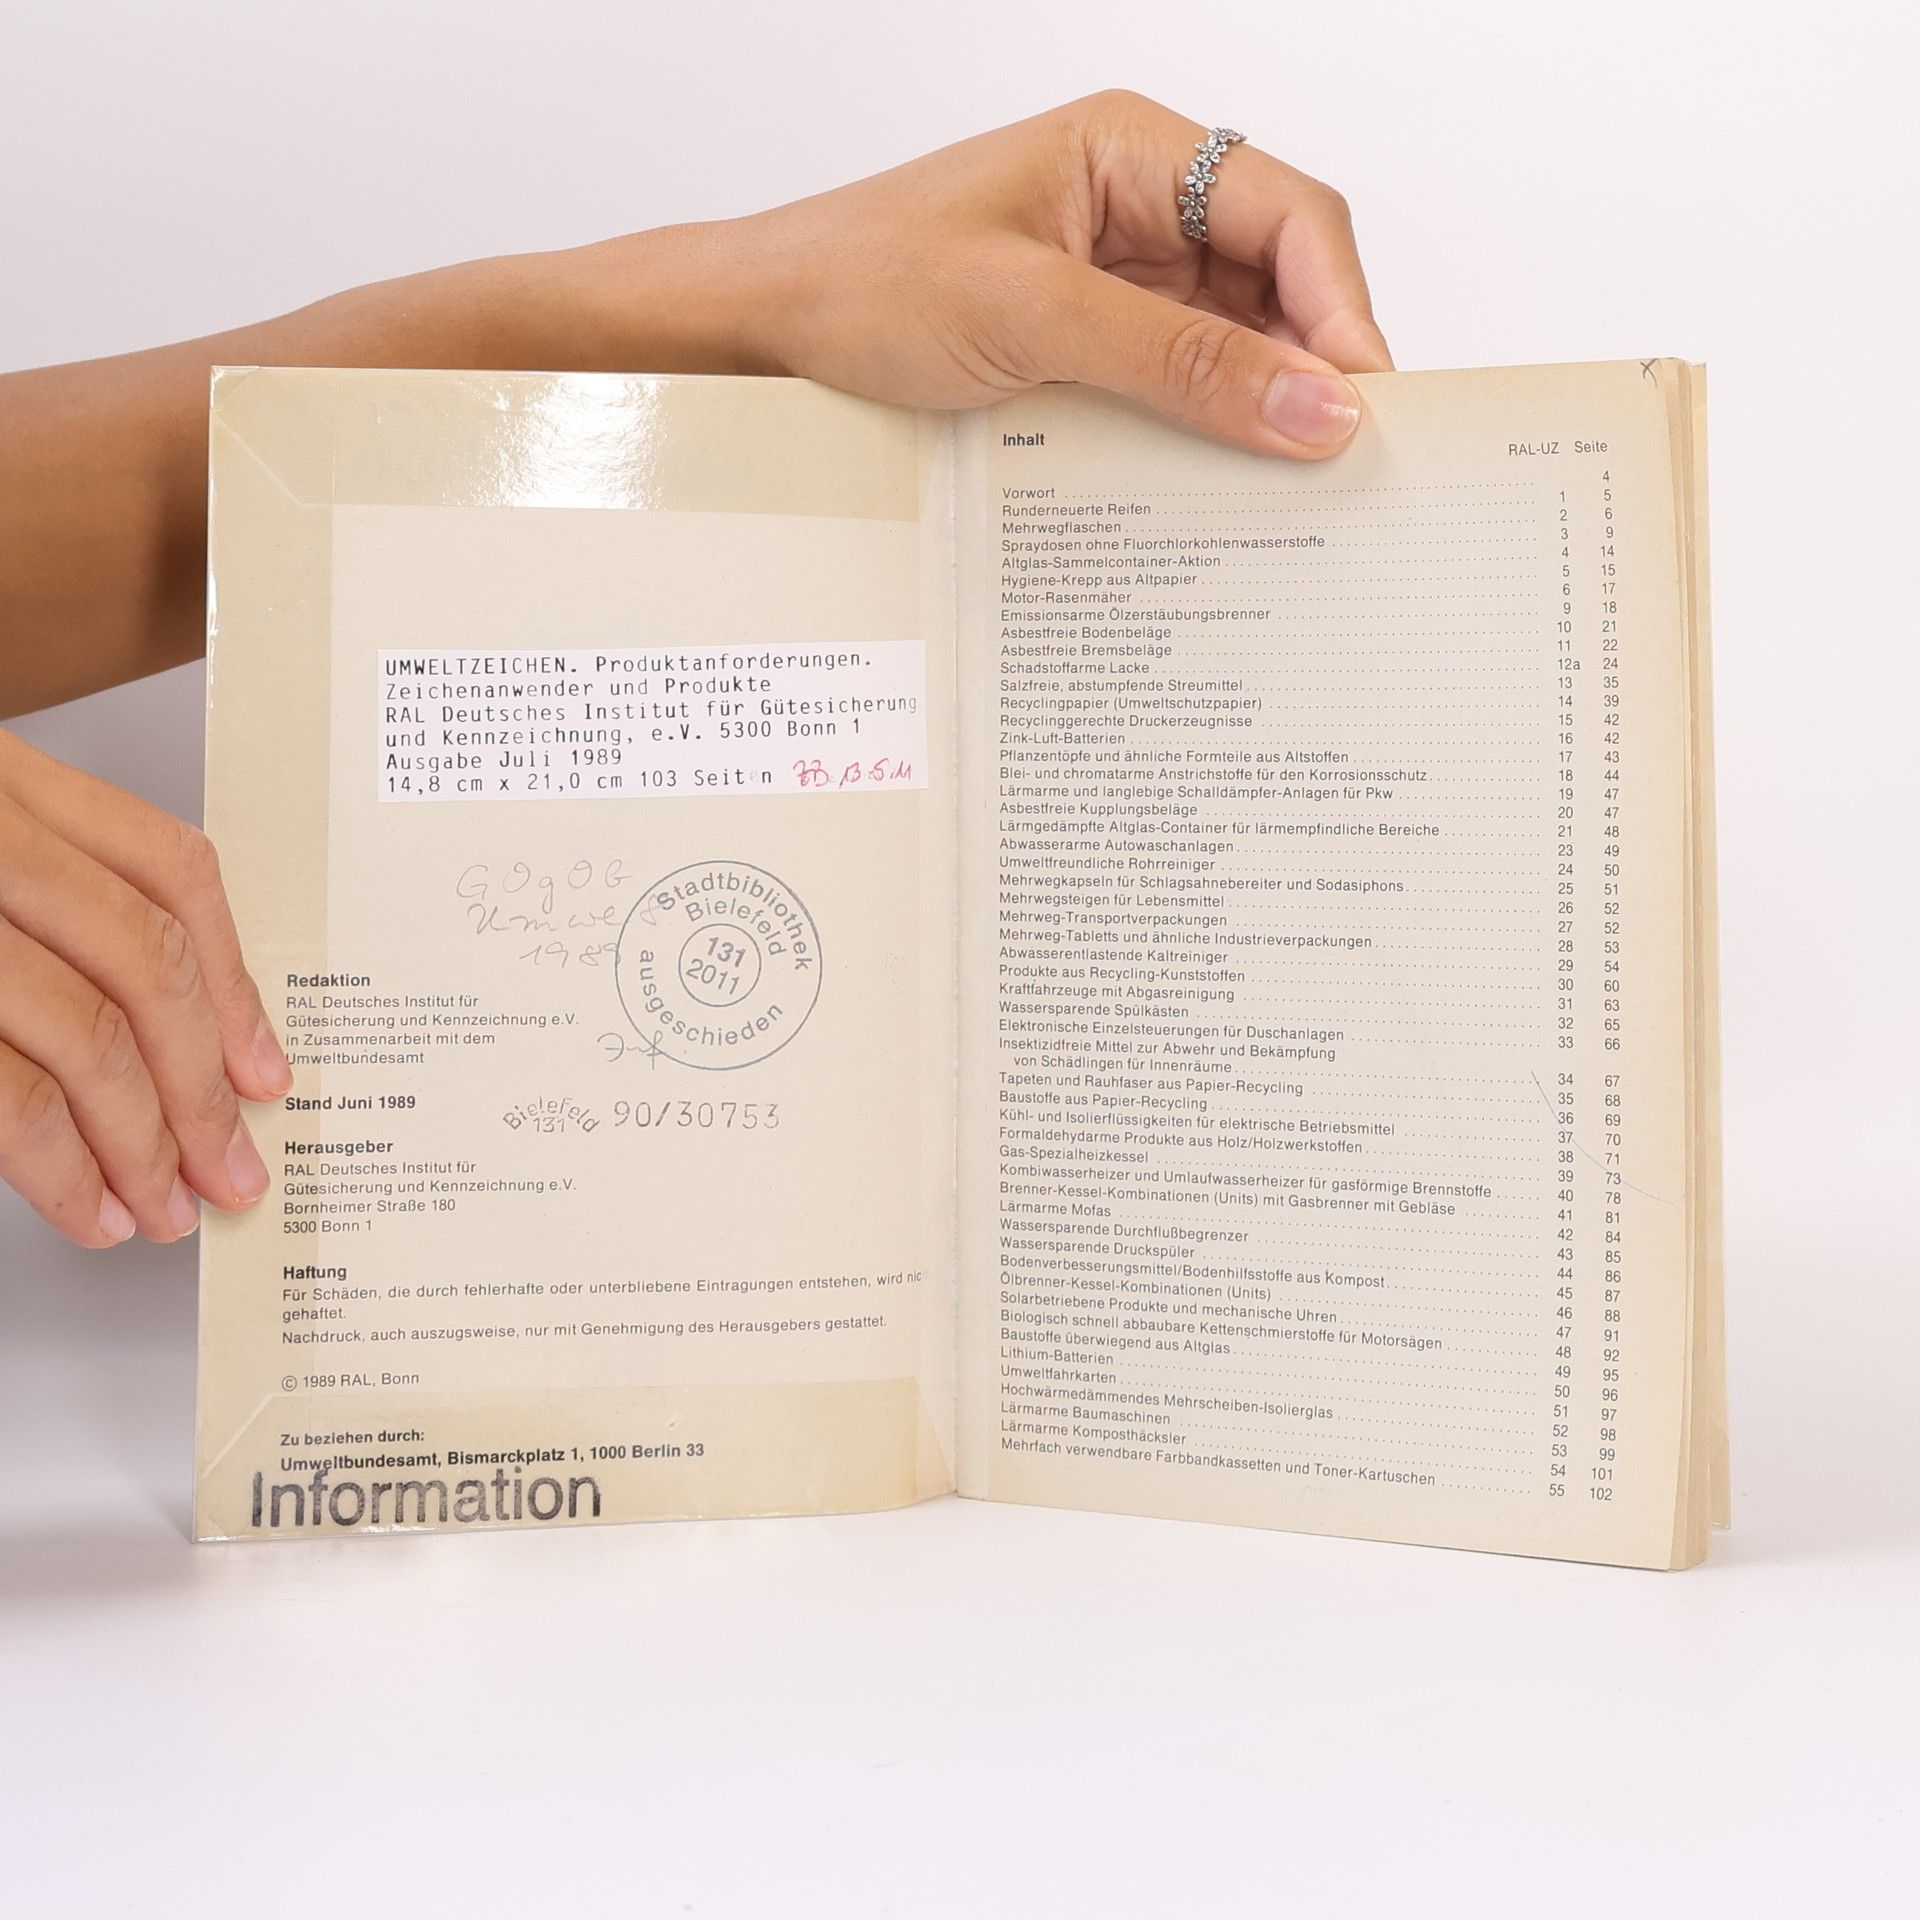 UMWELTZEICHEN. Produktanforderungen.
Zeichenanwender und Produkte
RAL Deutsches Institut für Gütesicherung
und Kennzeichnung, e.V. 5300 Bonn 1
Ausgabe Juli 1989
14,8 cm x 21,0 cm 103 Seiten
1989
Stadtbibliothek
Bielefeld
131
2011
ausgeschieden
Redaktion
RAL Deutsches Institut für
Gütesicherung und Kennzeichnung e.V.
in Zusammenarbeit mit dem
Umweltbundesamt
Stand Juni 1989
Bielefeld
131
90/30753
Herausgeber
RAL Deutsches Institut für
Gütesicherung und Kennzeichnung e.V.
Bornheimer Straße 180
5300 Bonn 1
Haftung
Für Schäden, die durch fehlerhafte oder unterbliebene Eintragungen entstehen, wird nic
gehaftet.
Nachdruck, auch auszugsweise, nur mit Genehmigung des Herausgebers gestattet.
© 1989 RAL, Bonn
Zu beziehen durch:
Umweltbundesamt, Bismarckplatz 1, 1000 Berlin 33
Information
Inhalt RAL-UZ Seite
Vorwort 4
Runderneuerte Reifen 1 5
Mehrwegflaschen 2 6
Spraydosen ohne Fluorchlorkohlenwasserstoffe 3 9
Altglas-Sammelcontainer-Aktion 4 14
Hygiene-Krepp aus Altpapier 5 15
Motor-Rasenmäher 6 17
Emissionsarme Ölzerstäubungsbrenner 9 18
Asbestfreie Bodenbeläge 10 21
Asbestfreie Bremsbeläge 11 22
Schadstoffarme Lacke 12a 24
Salzfreie, abstumpfende Streumittel 13 35
Recyclingpapier (Umweltschutzpapier) 14 39
Recyclinggerechte Druckerzeugnisse 15 42
Zink-Luft-Batterien 16 42
Pflanzentöpfe und ähnliche Formteile aus Altstoffen 17 43
Blei- und chromatarme Anstrichstoffe für den Korrosionsschutz 18 44
Lärmarme und langlebige Schalldämpfer-Anlagen für Pkw 19 47
Asbestfreie Kupplungsbeläge 20 47
Lärmgedämpfte Altglas-Container für lärmempfindliche Bereiche 21 48
Abwasserarme Autowaschanlagen 23 49
Umweltfreundliche Rohrreiniger 24 50
Mehrwegkapseln für Schlagsahnebereiter und Sodasiphons 25 51
Mehrwegsteigen für Lebensmittel 26 52
Mehrweg-Transportverpackungen 27 52
Mehrweg-Tabletts und ähnliche Industrieverpackungen 28 53
Abwasserentlastende Kaltreiniger 29 54
Produkte aus Recycling-Kunststoffen 30 60
Kraftfahrzeuge mit Abgasreinigung 31 63
Wassersparende Spülkästen 32 65
Elektronische Einzelsteuerungen für Duschanlagen 33 66
Insektizidfreie Mittel zur Abwehr und Bekämpfung
von Schädlingen für Innenräume 34 67
Tapeten und Rauhfaser aus Papier-Recycling 35 68
Baustoffe aus Papier-Recycling 36 69
Kühl- und Isolierflüssigkeiten für elektrische Betriebsmittel 37 70
Formaldehydarme Produkte aus Holz/Holzwerkstoffen 38 71
Gas-Spezialheizkessel 39 73
Kombiwasserheizer und Umlaufwasserheizer für gasförmige Brennstoffe 40 78
Brenner-Kessel-Kombinationen (Units) mit Gasbrenner mit Gebläse 41 81
Lärmarme Mofas 42 84
Wassersparende Durchflußbegrenzer 43 85
Wassersparende Druckspüler 44 86
Bodenverbesserungsmittel/Bodenhilfsstoffe aus Kompost 45 87
Ölbrenner-Kessel-Kombinationen (Units) 46 88
Solarbetriebene Produkte und mechanische Uhren 47 91
Biologisch schnell abbaubare Kettenschmierstoffe für Motorsägen 48 92
Baustoffe überwiegend aus Altglas 49 95
Lithium-Batterien 50 96
Umweltfahrkarten 51 97
Hochwärmedämmendes Mehrscheiben-Isolierglas 52 98
Lärmarme Baumaschinen 53 99
Lärmarme Komposthäcksler 54 101
Mehrfach verwendbare Farbbandkassetten und Toner-Kartuschen 55 102